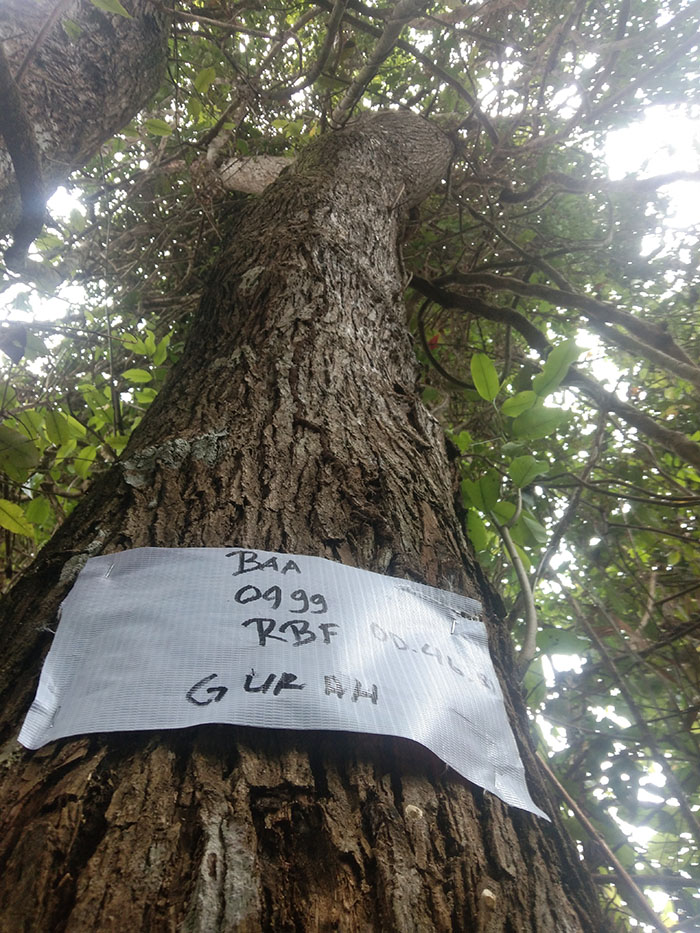 BAA
0499
RBF 00.46.
GURAH